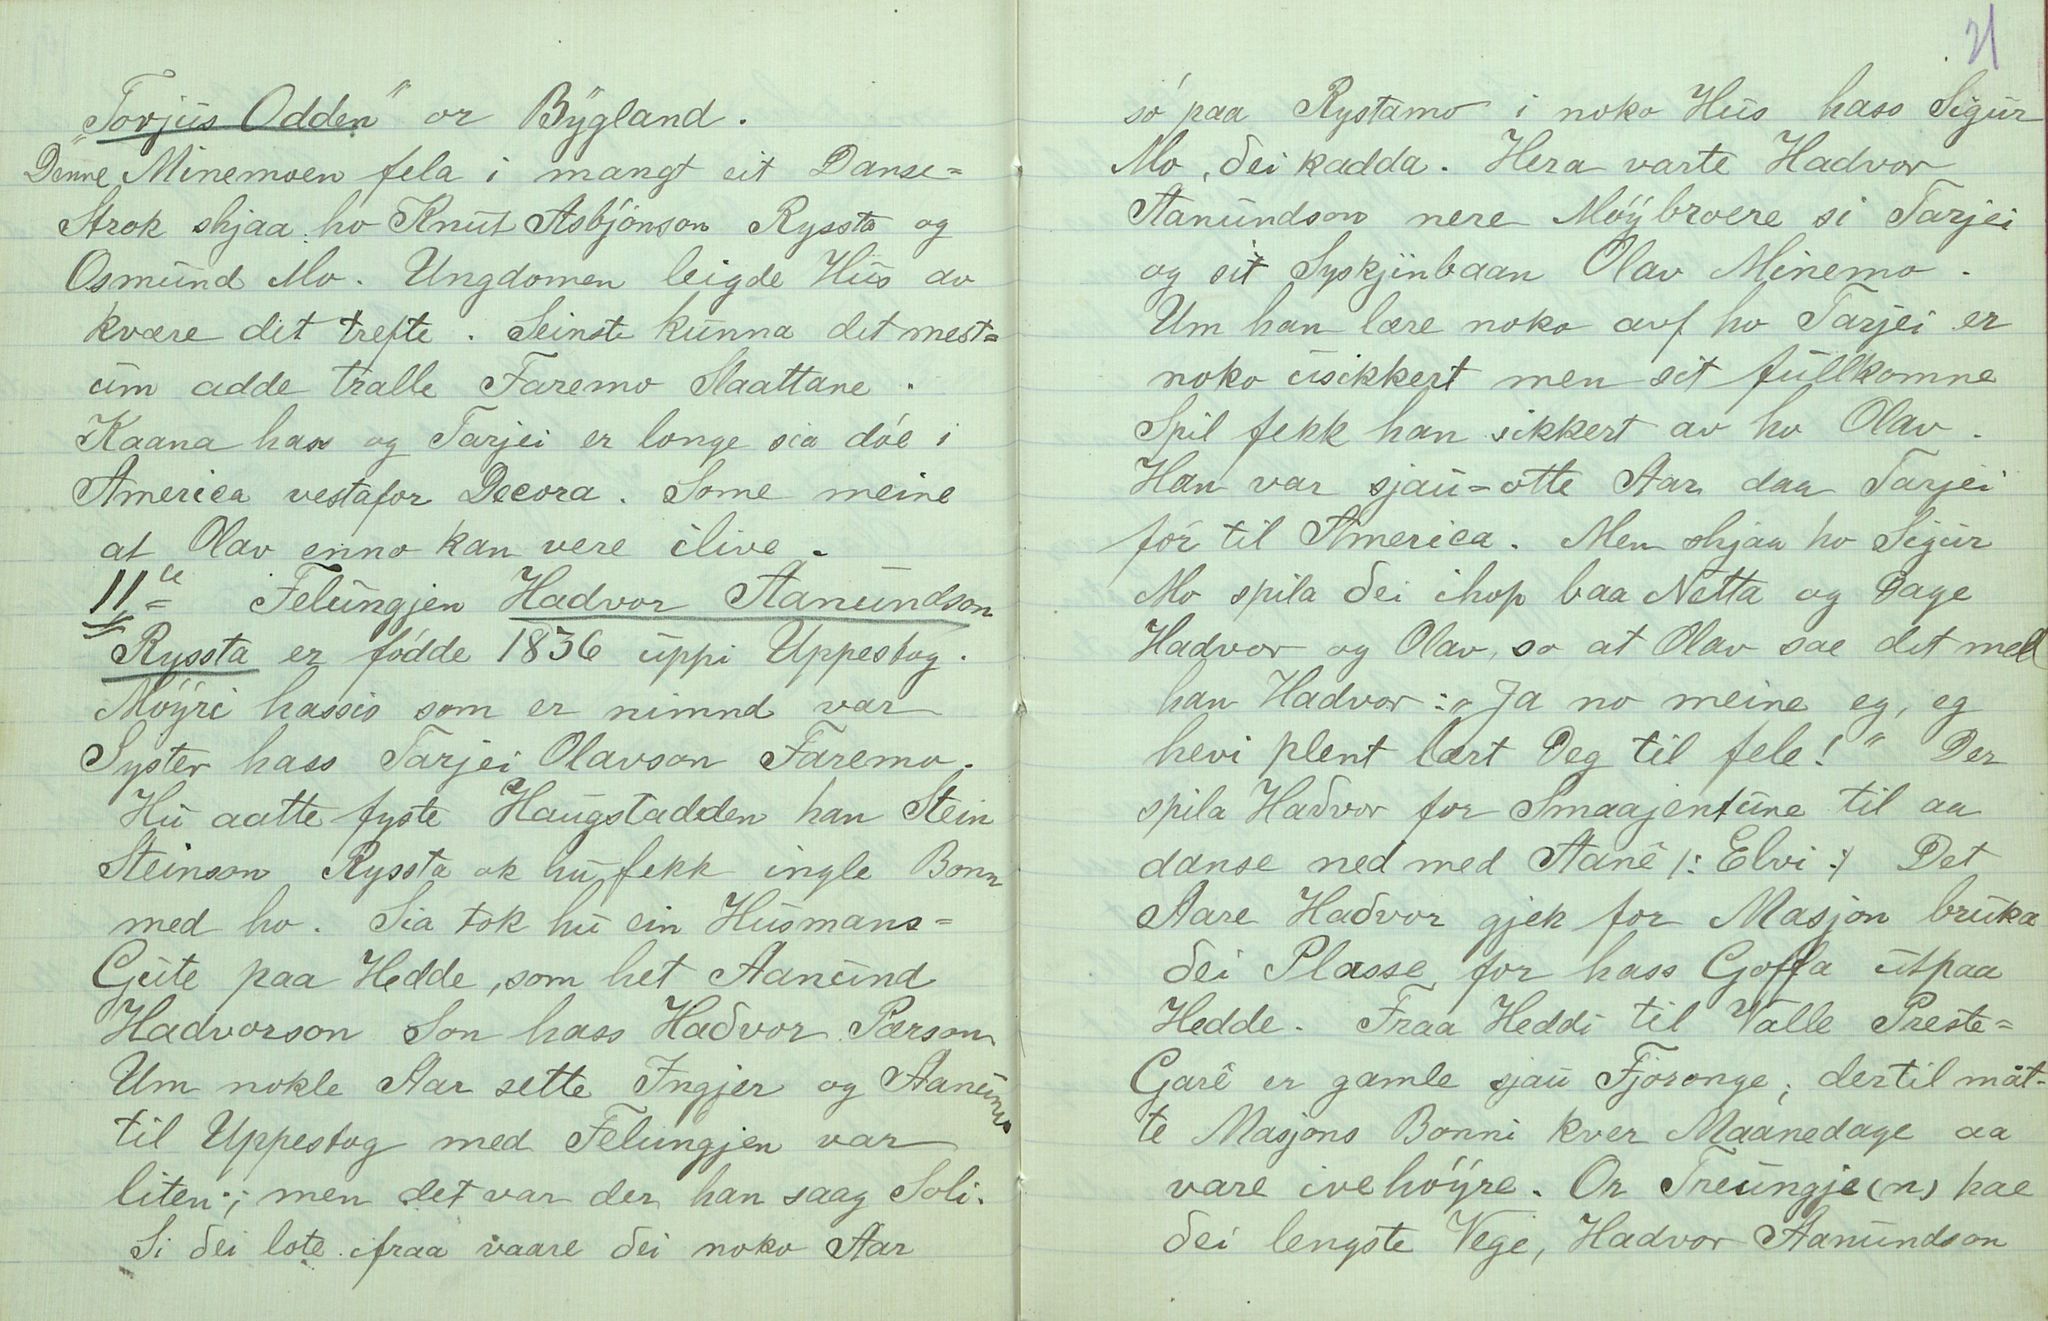 „Torjus Odden" or Bygland.
Denne Minemoen fela i mangt eit Danse=
Strok skjaa ho Knut Asbjönson Ryssta og
Osmund Mo. Ungdomen leigde Hus av
kvære dit trefte. Seinste kunna det mest=
um adde tralle Faremo Slaattane.
Kaana hass og Tarjei er longe sia döe i
America vestafor Decora. Some meine
at Olav enno kan vere ilive.
11te Felungjen Hadvor Aanundson
Ryssta er födde 1836 uppi Uppestog.
Möyri hassis som er nimnd var
Syster hass Tarjei Olavson Faremo.
Hu aatte fyste Haugstadden han Stein
Steinson Ryssta ok hu fekk ingle Bonn
med ho. Sia tok hu ein Husmans=
Gute paa Hedde, som het Aanund
Hadvorson Son hass Haðvor Pærson.
Um nokle Aar sette Ingjer og Aanund
til Uppestog med Felungjen var
liten; men det var der han saag Soli.
Si dei lote ifraa vaare dei noko Aar
21
so paa Rystamo i noko Hus hass Sigur
Mo, dei kadda. Hera varte Hadvor
Aanundson nere Möybroere si Tarjei
og sit Syskjinbaan Olav Minemo.
Um han lære noko avf ho Tarjei er
noko usikkert men sit fullkomne
Spil fekk han sikkert av ho Olav.
Han var sjau=otte Aar daa Tarjei
fór til America. Men skjaa ho Sigur
Mo spila dei ihop baa Netta og Dage
Hadvor og Olav, so at Olav sae det med
han Hadvor: „Ja no meine eg, eg
hevi plent lært Deg til fele!" Der
spila Haðvor for Smaajentune til aa
danse ned med Aanê /: Elvi :/ Det
Aare Haðvor gjek for Masjon bruka
dei Plasse for hass Goffa utpaa
Hedde. Fraa Heddi til Valle Preste=
Garê er gamle sjau Fjoronge; dertil måt-
te Masjons Bonni kver Maanedage aa
vare ivehöyre. Or Treungje(n) hae
dei lengste Vege, Hadvor Aanundson